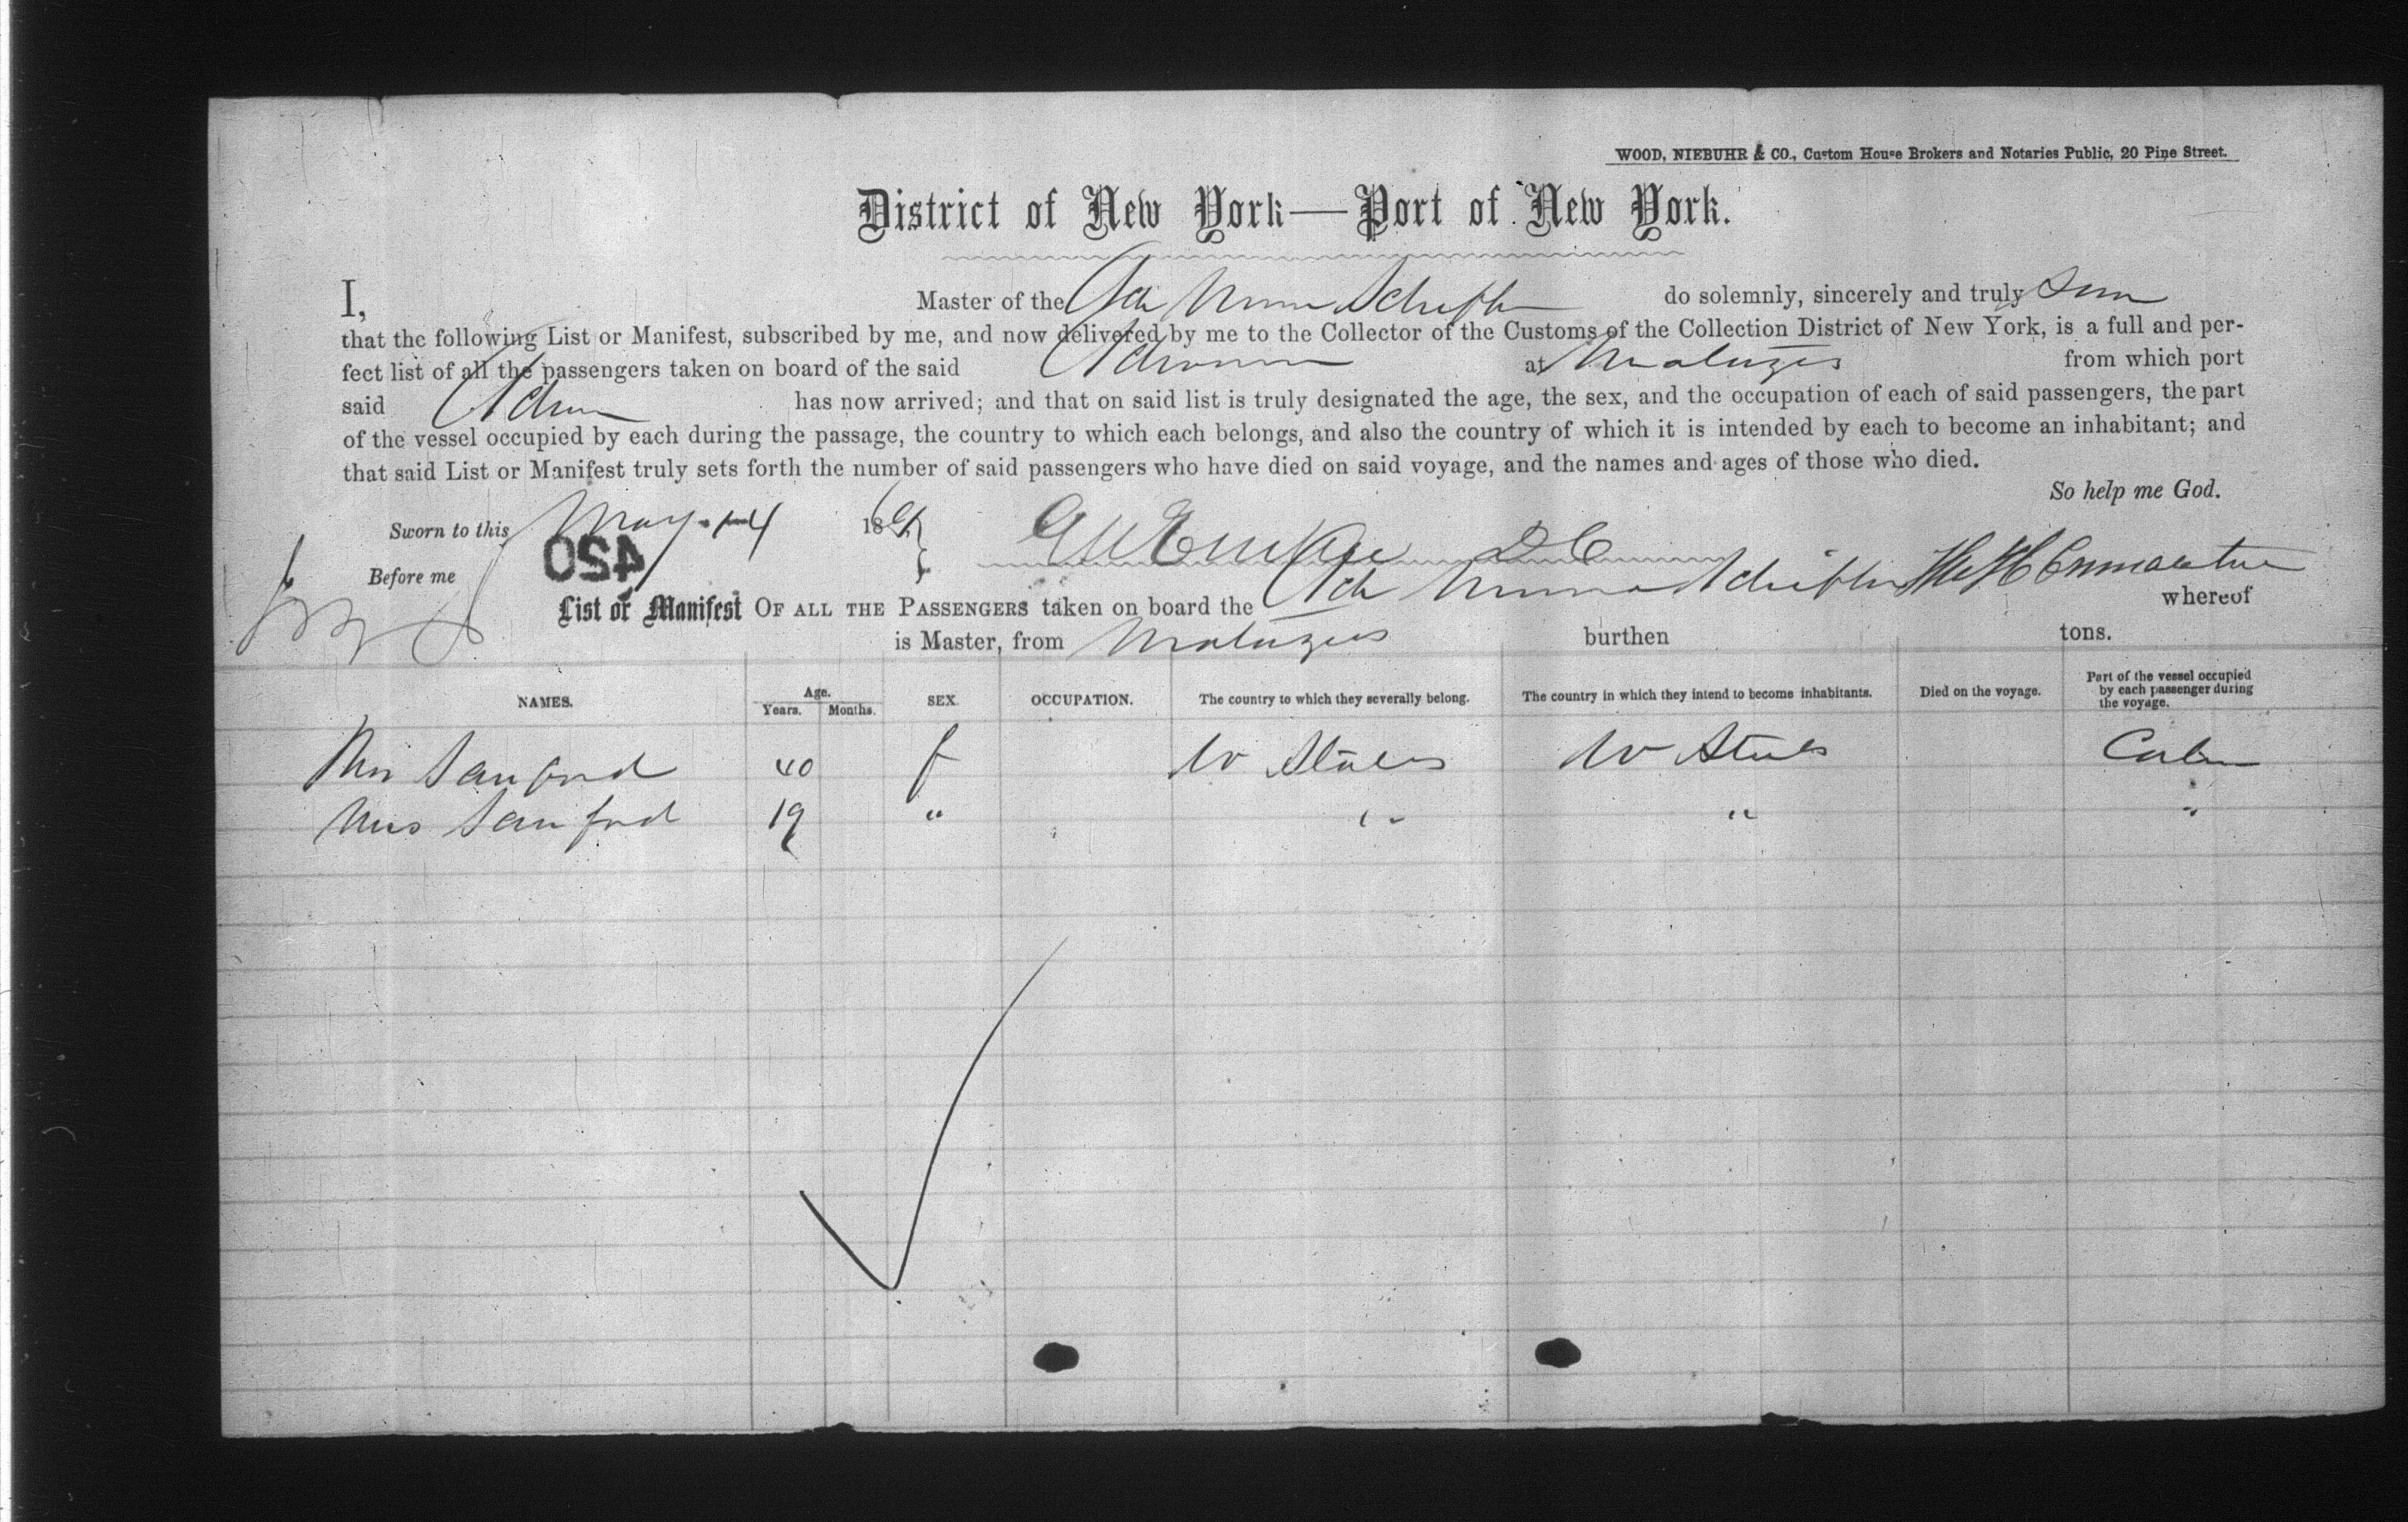 WOOD, NIEBUHR & CO., Custom House Brokers and Notaries Public, 20 Pine Street.
District of New York—Port of New York.
I, Master of the Sch do solemnly, sincerely and truly
that the following List or Manifest, subscribed by me, and now delivered by me to the Collector of the Customs of the Collection District of New York, is a full and per-
fect list of all the passengers taken on board of the said at from which port
said has now arrived; and that on said list is truly designated the age, the sex, and the occupation of each of said passengers, the part
of the vessel occupied by each during the passage, the country to which each belongs, and also the country of which it is intended by each to become an inhabitant; and
that said List or Manifest truly sets forth the number of said passengers who have died on said voyage, and the names and ages of those who died.
So help me God.
Sworn to this May 14 18
450
Before me
List or Manifest OF ALL THE PASSENGERS taken on board the Sch whereof
is Master, from burthen tons.
NAMES. Age. Years. Months. SEX. OCCUPATION. The country to which they severally belong. The country in which they intend to become inhabitants. Died on the voyage. Part of the vessel occupied by each passenger during the voyage.
Mrs Sanford 40 f States States Cabin
Miss Sanford 19 " " " "